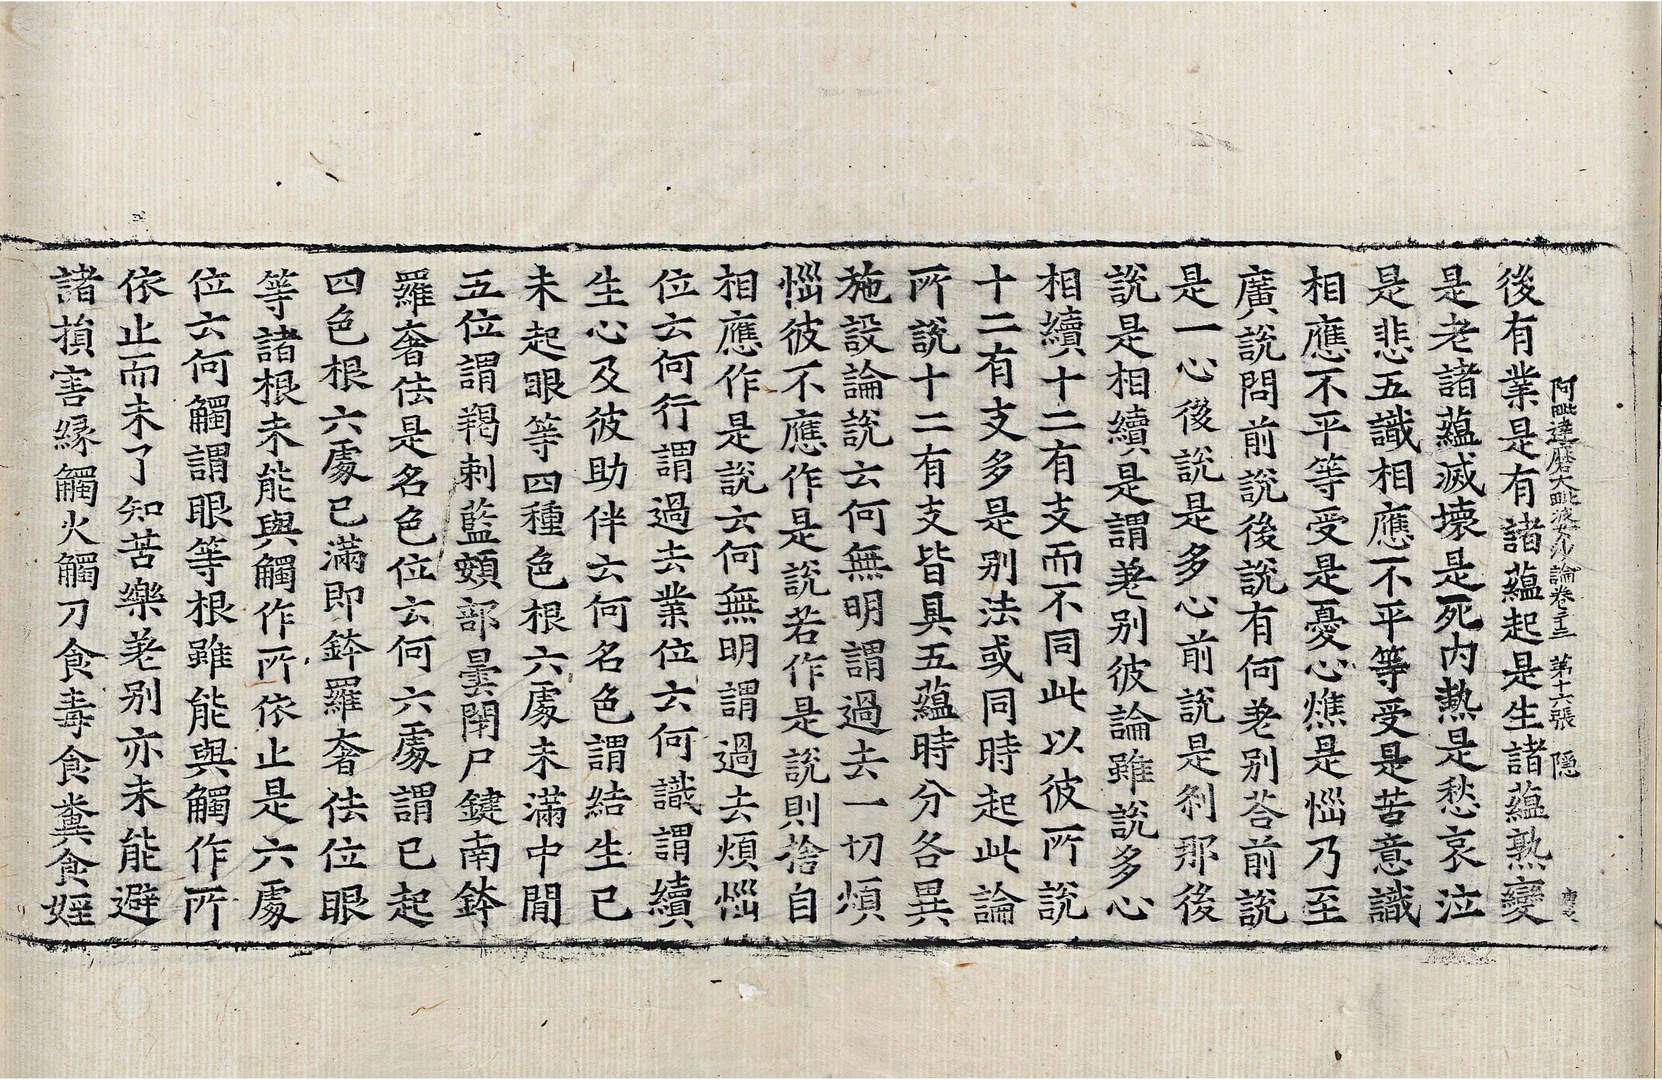 阿毗達磨大毗婆沙論卷二十三 第十六張 隱
後有業是有諸蘊起是生諸蘊熟變
是老諸蘊滅壞是死內熱是愁哀泣
是悲五識相應不平等受是苦意識
相應不平等受是憂心燋是惱乃至
廣說問前說後說有何差別荅前說
是一心後說是多心前說是剎那後
說是相續是謂差別彼論雖說多心
相續十二有支而不同此以彼所說
十二有支多是別法或同時起此論
所說十二有支皆具五蘊時分各異
施設論說云何無明謂過去一切煩
惱彼不應作是說若作是說則捨自
相應作是說云何無明謂過去煩惱
位云何行謂過去業位云何識謂續
生心及彼助伴云何名色謂結生已
未起眼等四種色根六處未滿中閒
五位謂羯剌藍頞部曇閉尸鍵南鉢
羅奢佉是名色位云何六處謂已起
四色根六處已滿即鉢羅奢佉位眼
等諸根未能與觸作所依止是六處
位云何觸謂眼等根雖能與觸作所
依止而未了知苦樂差別亦未能避
諸損害緣觸火觸刀食毒食糞食婬